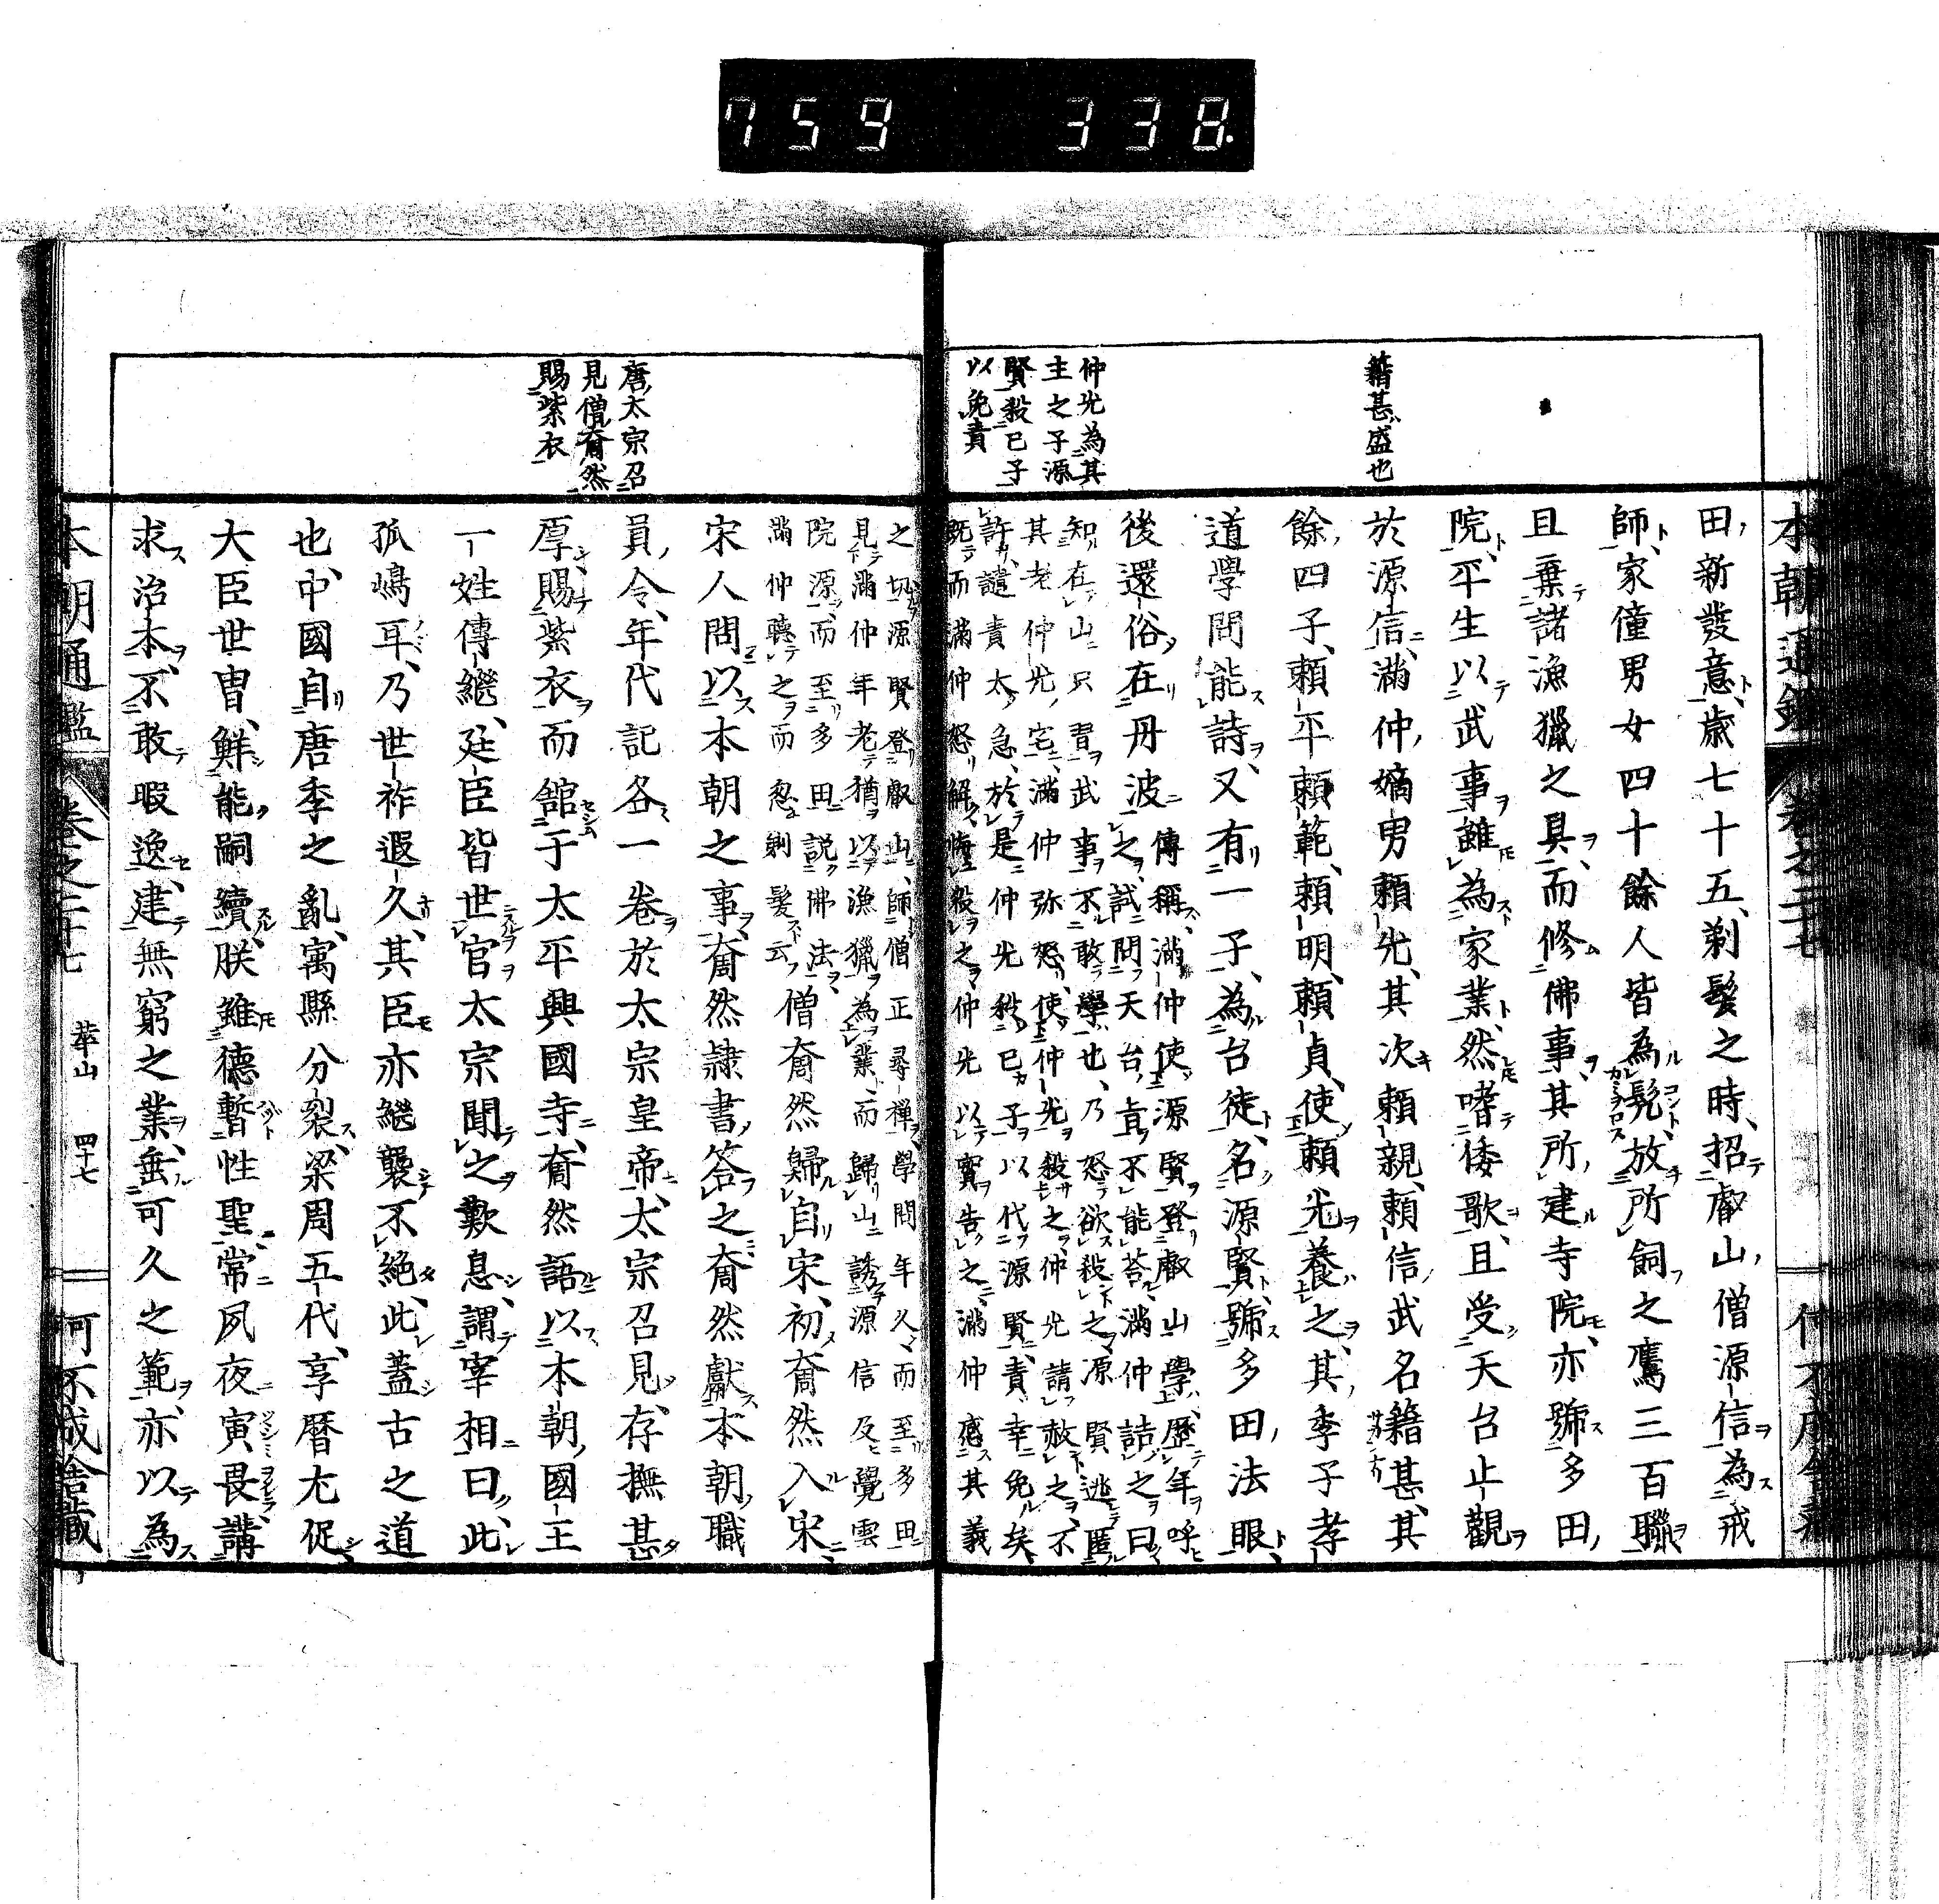 759 338.
籍甚盛也
仲光為其
主之子源
賢殺已子
以免責
田新發意歲七十五剃髮之時招叡山僧源信為戒
師家僮男女四十餘人皆為髡放所飼之鷹三百聯
且棄諸漁獵之具而修佛事其所建寺院亦號多田
院平生以武事雖為家業然嗜倭歌且受天台止觀
於源信滿仲嫡男賴光其次賴親賴信武名籍甚其
餘四子賴平賴範賴明賴貞使賴光養之其季子孝
道學問能詩又有一子為台徒名源賢號多田法眼
後還俗在丹波
傳稱滿仲使源賢登叡山學歷年呼
之試問天台旨不能荅滿仲詰之曰
知在山只習武事不敢學也乃怒欲殺之源賢逃匿
其老仲光宅滿仲弥怒使仲光殺之仲光請赦之不
許譴責太急於是仲光殺已子以代源賢責幸免矣
既而滿仲怒解悔殺之仲光以實告之滿仲感其義
唐太宗召
見僧奝然
賜紫衣
之切源賢登叡山師僧正尋禪學問年久而至多田
見滿仲年老猶以漁獵為業而歸山誘源信及覺雲
院源而至多田說佛法
滿仲聽之而忽剃髮云
僧奝然歸自宋初奝然入宋
宋人問以本朝之事奝然隷書答之奝然獻本朝職
員令年代記各一卷於太宗皇帝太宗召見存撫甚
厚賜紫衣而舘于太平興國寺奝然語以本朝國王
一姓傳繼廷臣皆世官太宗聞之歎息謂宰相曰此
孤嶋耳乃世祚遐久其臣亦繼襲不絕此蓋古之道
也中國自唐季之亂寓縣分裂梁周五代享曆尤促
大臣世冑鮮能嗣續朕雖德暫性聖常夙夜寅畏講
求治本不敢暇逸建無窮之業垂可久之範亦以為
本朝通鑑 卷之二十七 華山 四十七